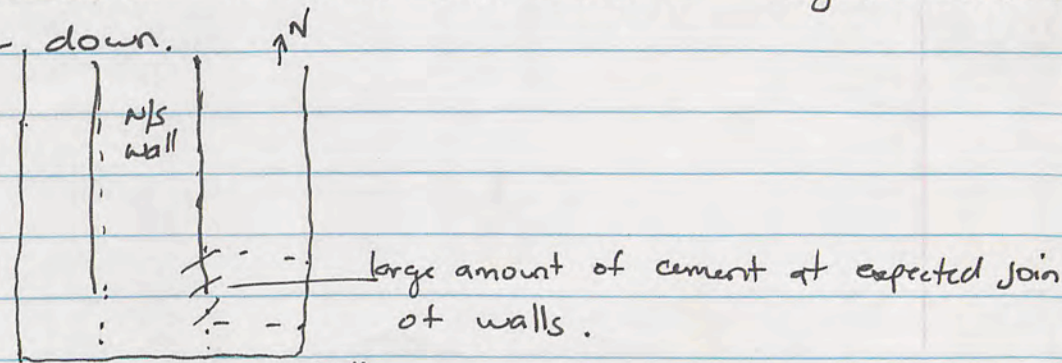 down.
N
N/S
wall
large amount of cement at expected join
of walls.